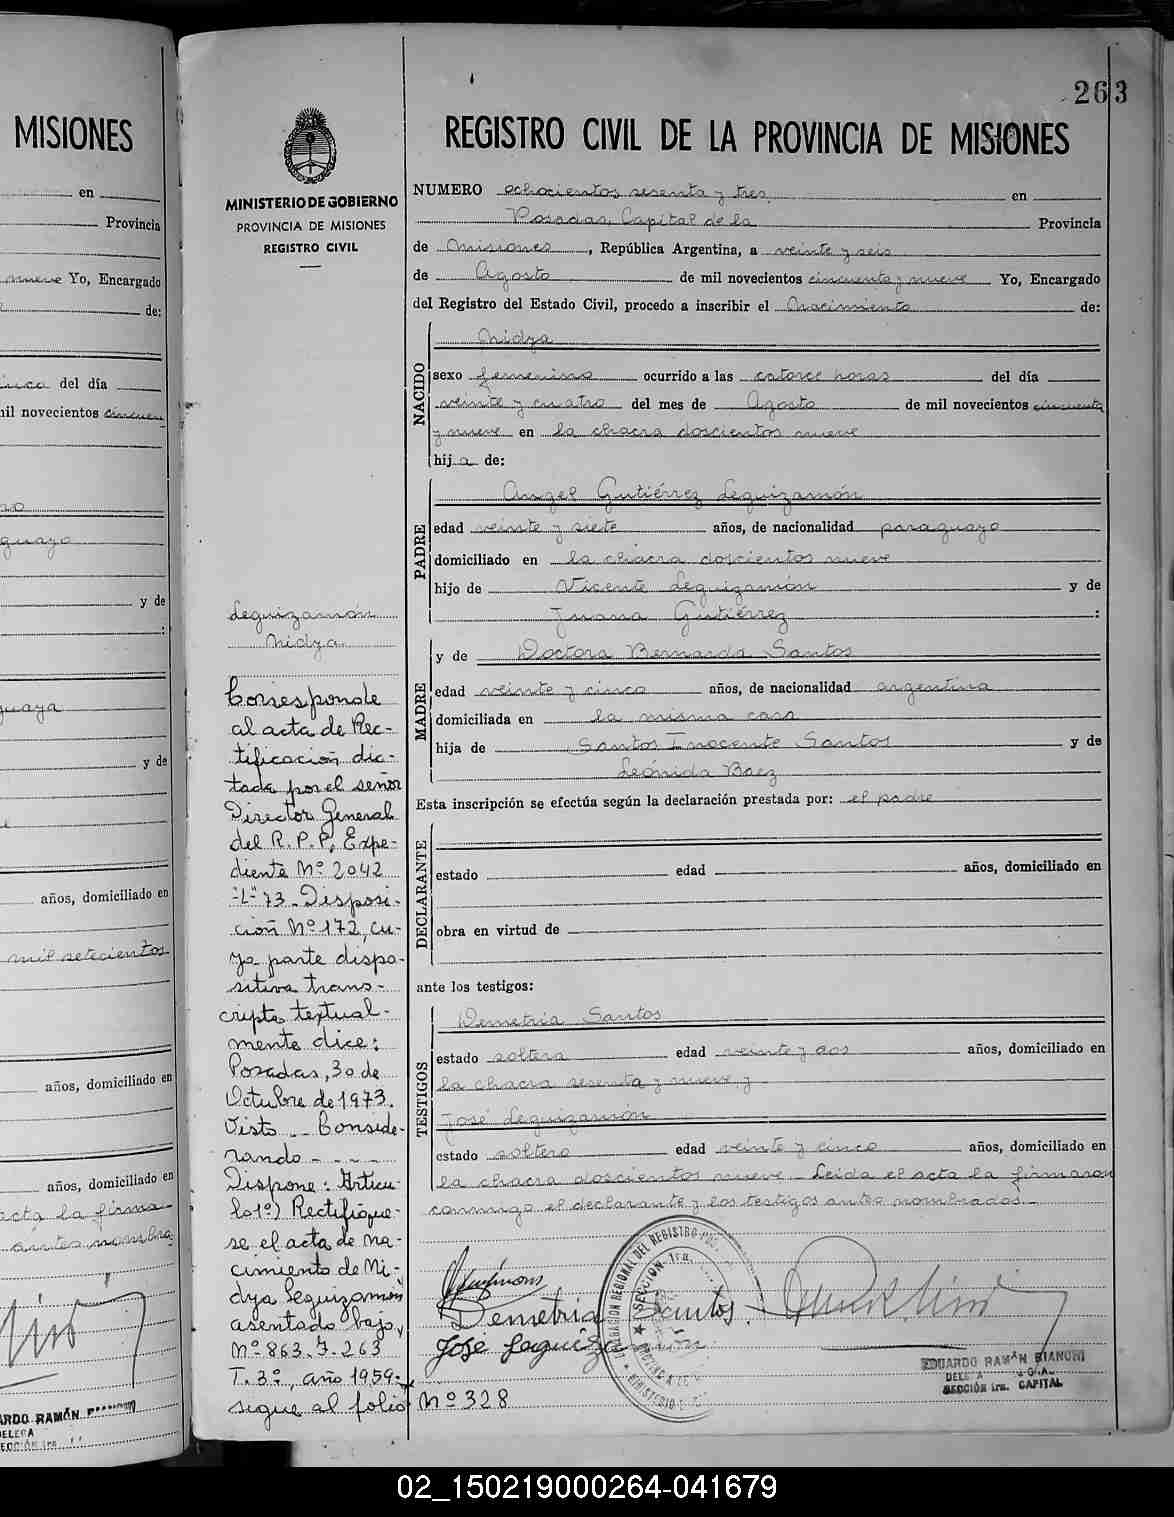 MISIONES
en
Provincia
nueve Yo, Encargado
de:
del día
mil novecientos cincuen
guayo
y de
:
guaya
y de
años, domiciliado en
mil setecientos
años, domiciliado en
años, domiciliado en
acta la firma
antes nombra
ARDO RAMÓN
263
MINISTERIO DE GOBIERNO
PROVINCIA DE MISIONES
REGISTRO CIVIL
REGISTRO CIVIL DE LA PROVINCIA DE MISIONES
NUMERO ochocientos sesenta y tres en
Posadas, Capital de la Provincia
de Misiones, República Argentina, a veinte y seis
de Agosto de mil novecientos cincuenta y nueve Yo, Encargado
del Registro del Estado Civil, procedo a inscribir el Nacimiento de:
NACIDO
Nidya
sexo femenino ocurrido a las catorce horas del día
veinte y cuatro del mes de Agosto de mil novecientos cincuenta
y nueve en la chacra doscientos nueve
hija de:
PADRE
Angel Gutiérrez Leguizamón
edad veinte y siete años, de nacionalidad paraguayo
domiciliado en la chacra doscientos nueve
hijo de Vicente Leguizamón y de
Juana Gutiérrez :
MADRE
y de Doctora Bernarda Santos
edad veinte y cinco años, de nacionalidad argentina
domiciliada en la misma casa
hija de Santos Inocente Santos y de
Leónida Baez
Esta inscripción se efectúa según la declaración prestada por: el padre
DECLARANTE
estado edad años, domiciliado en
obra en virtud de
ante los testigos:
TESTIGOS
Demetria Santos
estado soltera edad veinte y dos años, domiciliado en
la chacra sesenta y nueve y
José Leguizamón
estado soltero edad veinte y cinco años, domiciliado en
la chacra doscientos nueve. Leída el acta la firmaron
conmigo el declarante y los testigos antes nombrados.
Leguizamón
Nidya
Corresponde
al acta de Rec-
tificación dic-
tada por el señor
Director General
del R.P.P. Expe-
diente Nº 2042
"L" 73. Disposi-
ción Nº 172, cu-
ya parte dispo-
sitiva trans-
cripta textual-
mente dice:
Posadas, 30 de
Octubre de 1973.
Visto .. Conside-
rando - - - -
Dispone: Artícu-
lo 1º) Rectifíque-
se el acta de na-
cimiento de Ni-
dya Leguizamón
asentado bajo
Nº 863. F. 263
T. 3º, año 1959.
sigue al folio Nº 328
Demetria Santos.
José Leguiza
SECCION 1ra.
EDUARDO RAMÓN BIANCHI
SECCIÓN 1ra. CAPITAL
02_150219000264-041679